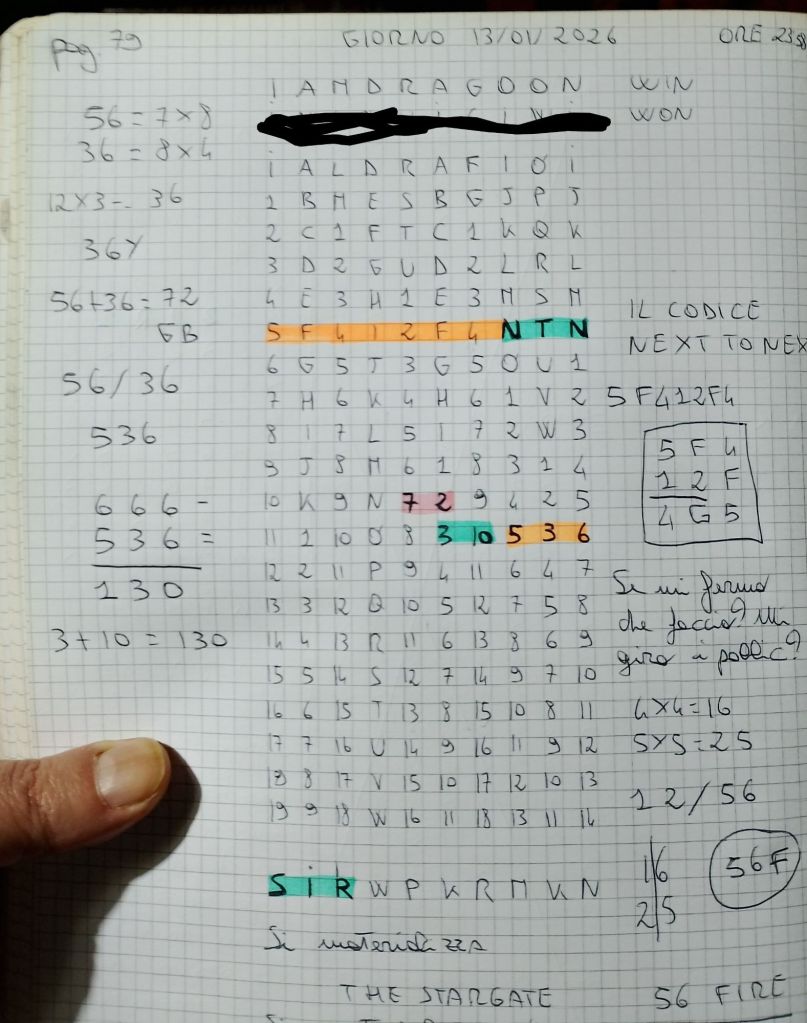 pag 79 GIORNO 13/01/2026 ORE 23
I A M D R A G O O N WIN
56 = 7 x 8 WON
36 = 8 x 4
i A L D R A F I O i
12 x 3 -- 36 1 B M E S B G J P J
2 C 1 F T C 1 K Q K
36Y
3 D 2 G U D 2 L R L
56 + 36 = 72 4 E 3 H 1 E 3 M S M IL CODICE
GB 5 F 4 I 2 F 4 N T N NEXT TO NEX
56/36 6 G 5 J 3 G 5 O U 1
7 H 6 K 4 H 6 1 V 2 5F412F4
536 8 I 7 L 5 I 7 2 W 3
9 J 8 M 6 1 8 3 1 4 5 F 4
666 - 10 K 9 N 7 2 9 4 2 5 12F
536 = 11 1 10 O 8 3 10 5 3 6 4G5
130 12 2 11 P 9 4 11 6 4 7 Se mi fermo
13 3 12 Q 10 5 12 7 5 8 che faccio? Mi
3 + 10 = 130 14 4 13 R 11 6 13 8 6 9 giro i pollic?
15 5 14 S 12 7 14 9 7 10
16 6 15 T 13 8 15 10 8 11 4x4=16
17 7 16 U 14 9 16 11 9 12 5x5=25
18 8 17 V 15 10 17 12 10 13
19 9 18 W 16 11 18 13 11 14 12/56
S i R W P K R M K N 16 56F
25
Si materializza
THE STARGATE 56 FIRE